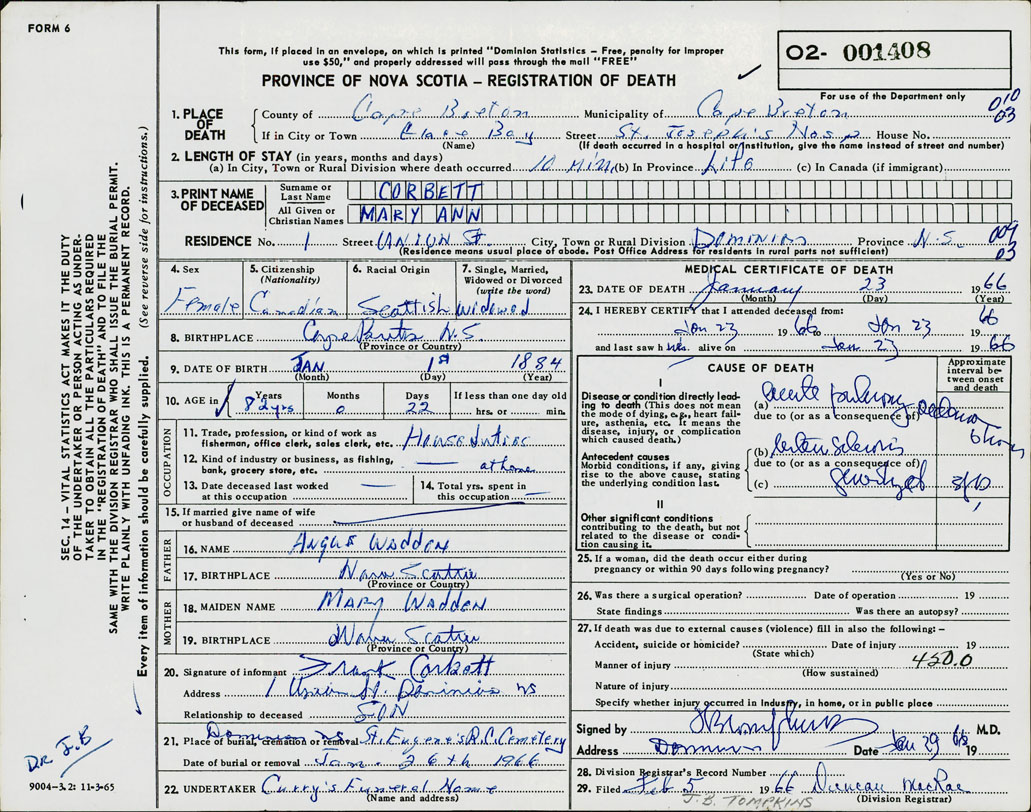 FORM 6
This form, if placed in an envelope, on which is printed "Dominion Statistics – Free, penalty for improper
use $50," and properly addressed will pass through the mail "FREE"
PROVINCE OF NOVA SCOTIA – REGISTRATION OF DEATH
O2- 001408
For use of the Department only
010
03
1. PLACE OF DEATH
County of Cape Breton Municipality of Cape Breton
If in City or Town Glace Bay Street St. Joseph's Hosp House No.
(Name) (If death occurred in a hospital or institution, give the name instead of street and number)
2. LENGTH OF STAY (in years, months and days)
(a) In City, Town or Rural Division where death occurred 10 Min (b) In Province Life (c) In Canada (if immigrant)
3. PRINT NAME OF DECEASED
Surname or Last Name CORBETT
All Given or Christian Names MARY ANN
RESIDENCE No. 1 Street UNION St. City, Town or Rural Division DOMINION Province N.S.
(Residence means usual place of abode. Post Office Address for residents in rural parts not sufficient)
009
03
4. Sex Female
5. Citizenship (Nationality) Canadian
6. Racial Origin Scottish
7. Single, Married, Widowed or Divorced (write the word) Widowed
8. BIRTHPLACE Cape Breton N.S.
(Province or Country)
9. DATE OF BIRTH JAN 1st 1884
(Month) (Day) (Year)
10. AGE in Years Months Days If less than one day old
82 yrs 0 22 hrs. or min.
OCCUPATION
11. Trade, profession, or kind of work as fisherman, office clerk, sales clerk, etc. House duties
12. Kind of industry or business, as fishing, bank, grocery store, etc. — at home
13. Date deceased last worked at this occupation —
14. Total yrs. spent in this occupation —
15. If married give name of wife or husband of deceased
FATHER
16. NAME Angus Wadden
17. BIRTHPLACE Nova Scotia
(Province or Country)
MOTHER
18. MAIDEN NAME MARY Wadden
19. BIRTHPLACE Nova Scotia
(Province or Country)
20. Signature of informant Frank Corbett
Address 1 Union St. Dominion NS
Relationship to deceased SON
21. Place of burial, cremation or removal Dominion NS St. Eugene's R.C. Cemetery
Date of burial or removal Jan. 26th 1966
22. UNDERTAKER Curry's Funeral Home
(Name and address)
MEDICAL CERTIFICATE OF DEATH
23. DATE OF DEATH January 23 1966
(Month) (Day) (Year)
24. I HEREBY CERTIFY that I attended deceased from:
Jan 23 1966 to Jan 23 1966
and last saw her alive on Jan 23 1966
CAUSE OF DEATH
Approximate interval between onset and death
I
Disease or condition directly leading to death (This does not mean the mode of dying, e.g., heart failure, asthenia, etc. It means the disease, injury, or complication which caused death.)
(a) acute pulmonary oedema 6 hours
due to (or as a consequence of)
Antecedent causes
Morbid conditions, if any, giving rise to the above cause, stating the underlying condition last.
(b) arterio sclerosis
due to (or as a consequence of)
(c) generalized
II
Other significant conditions contributing to the death, but not related to the disease or condition causing it.
25. If a woman, did the death occur either during pregnancy or within 90 days following pregnancy?
(Yes or No)
26. Was there a surgical operation? Date of operation 19
State findings Was there an autopsy?
27. If death was due to external causes (violence) fill in also the following: –
Accident, suicide or homicide? Date of injury 19
(State which)
450.0
Manner of injury
(How sustained)
Nature of injury
Specify whether injury occurred in Industry, in home, or in public place
Signed by M.D.
Address Dominion Date Jan 29 1966
28. Division Registrar's Record Number
29. Filed Feb 5 1966 Duncan MacRae
(Division Registrar)
J.B. TOMPKINS
SEC. 14 – VITAL STATISTICS ACT MAKES IT THE DUTY
OF THE UNDERTAKER OR PERSON ACTING AS UNDER-
TAKER TO OBTAIN ALL THE PARTICULARS REQUIRED
IN THE "REGISTRATION OF DEATH" AND TO FILE THE
SAME WITH THE DIVISION REGISTRAR WHO SHALL ISSUE THE BURIAL PERMIT.
WRITE PLAINLY WITH UNFADING INK. THIS IS A PERMANENT RECORD.
Every item of information should be carefully supplied. (See reverse side for instructions.)
DR. J.B
9004-3.2: 11-3-65